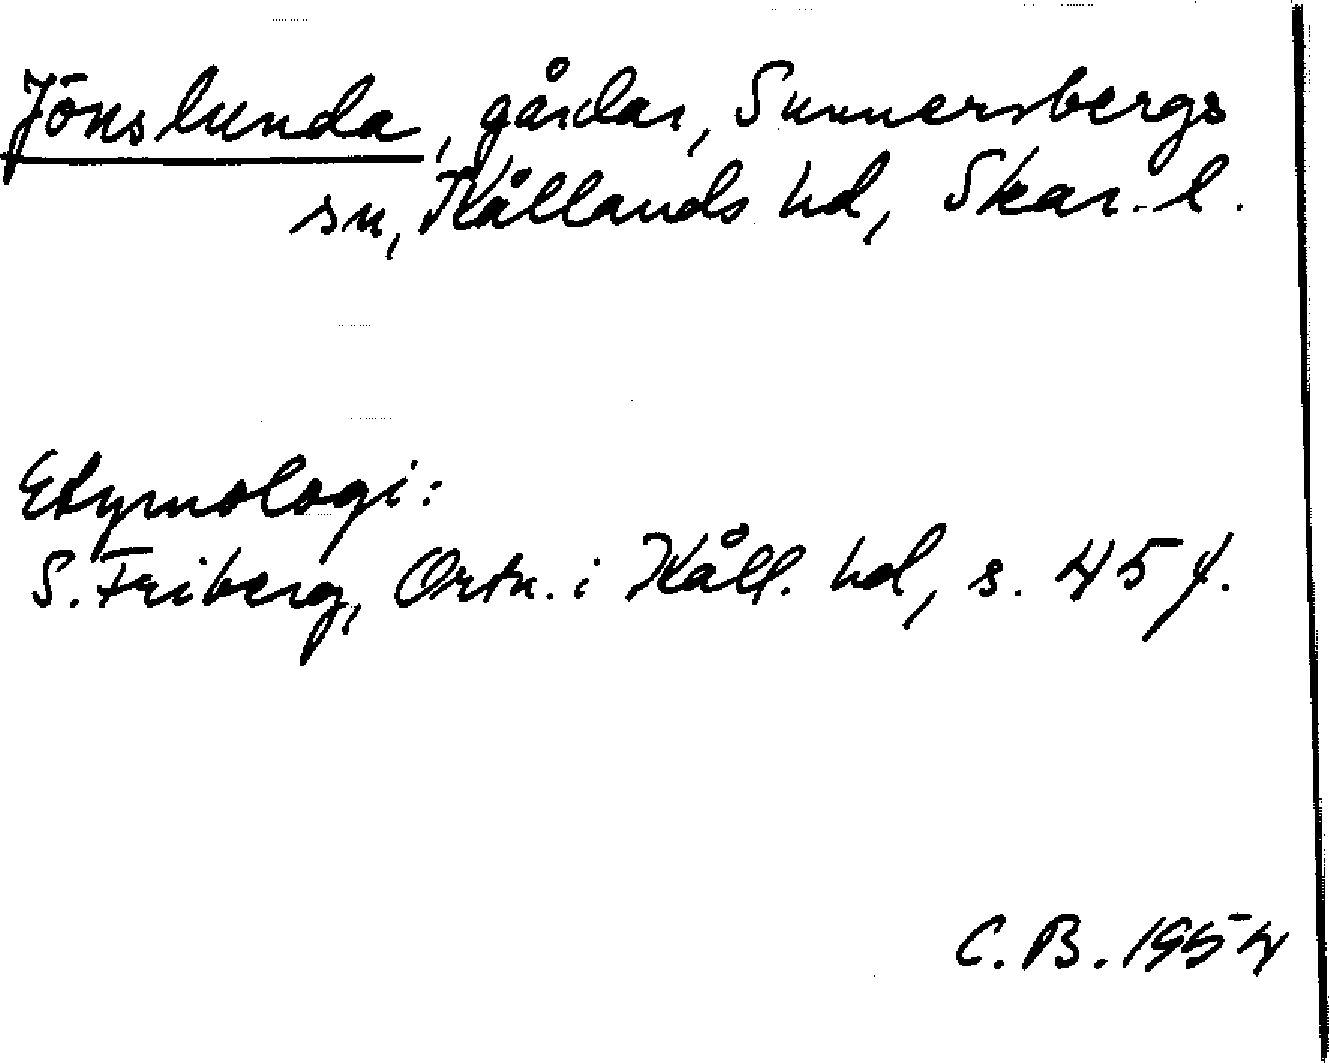 Jönslunda, gårdar, Sunnersbergs
sn, Kållands hd, Skar. l.
Etymologi:
S. Friberg, Ortn. i Kåll. hd, s. 45 f.
C. B. 1954